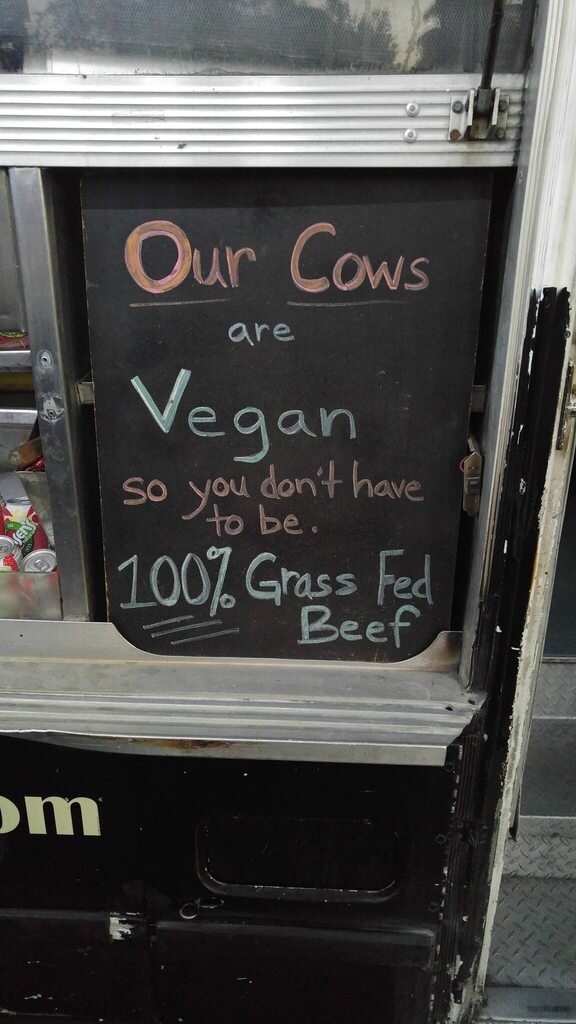 Our Cows
are
Vegan
so you don't have
to be.
100% Grass Fed
Beef
om